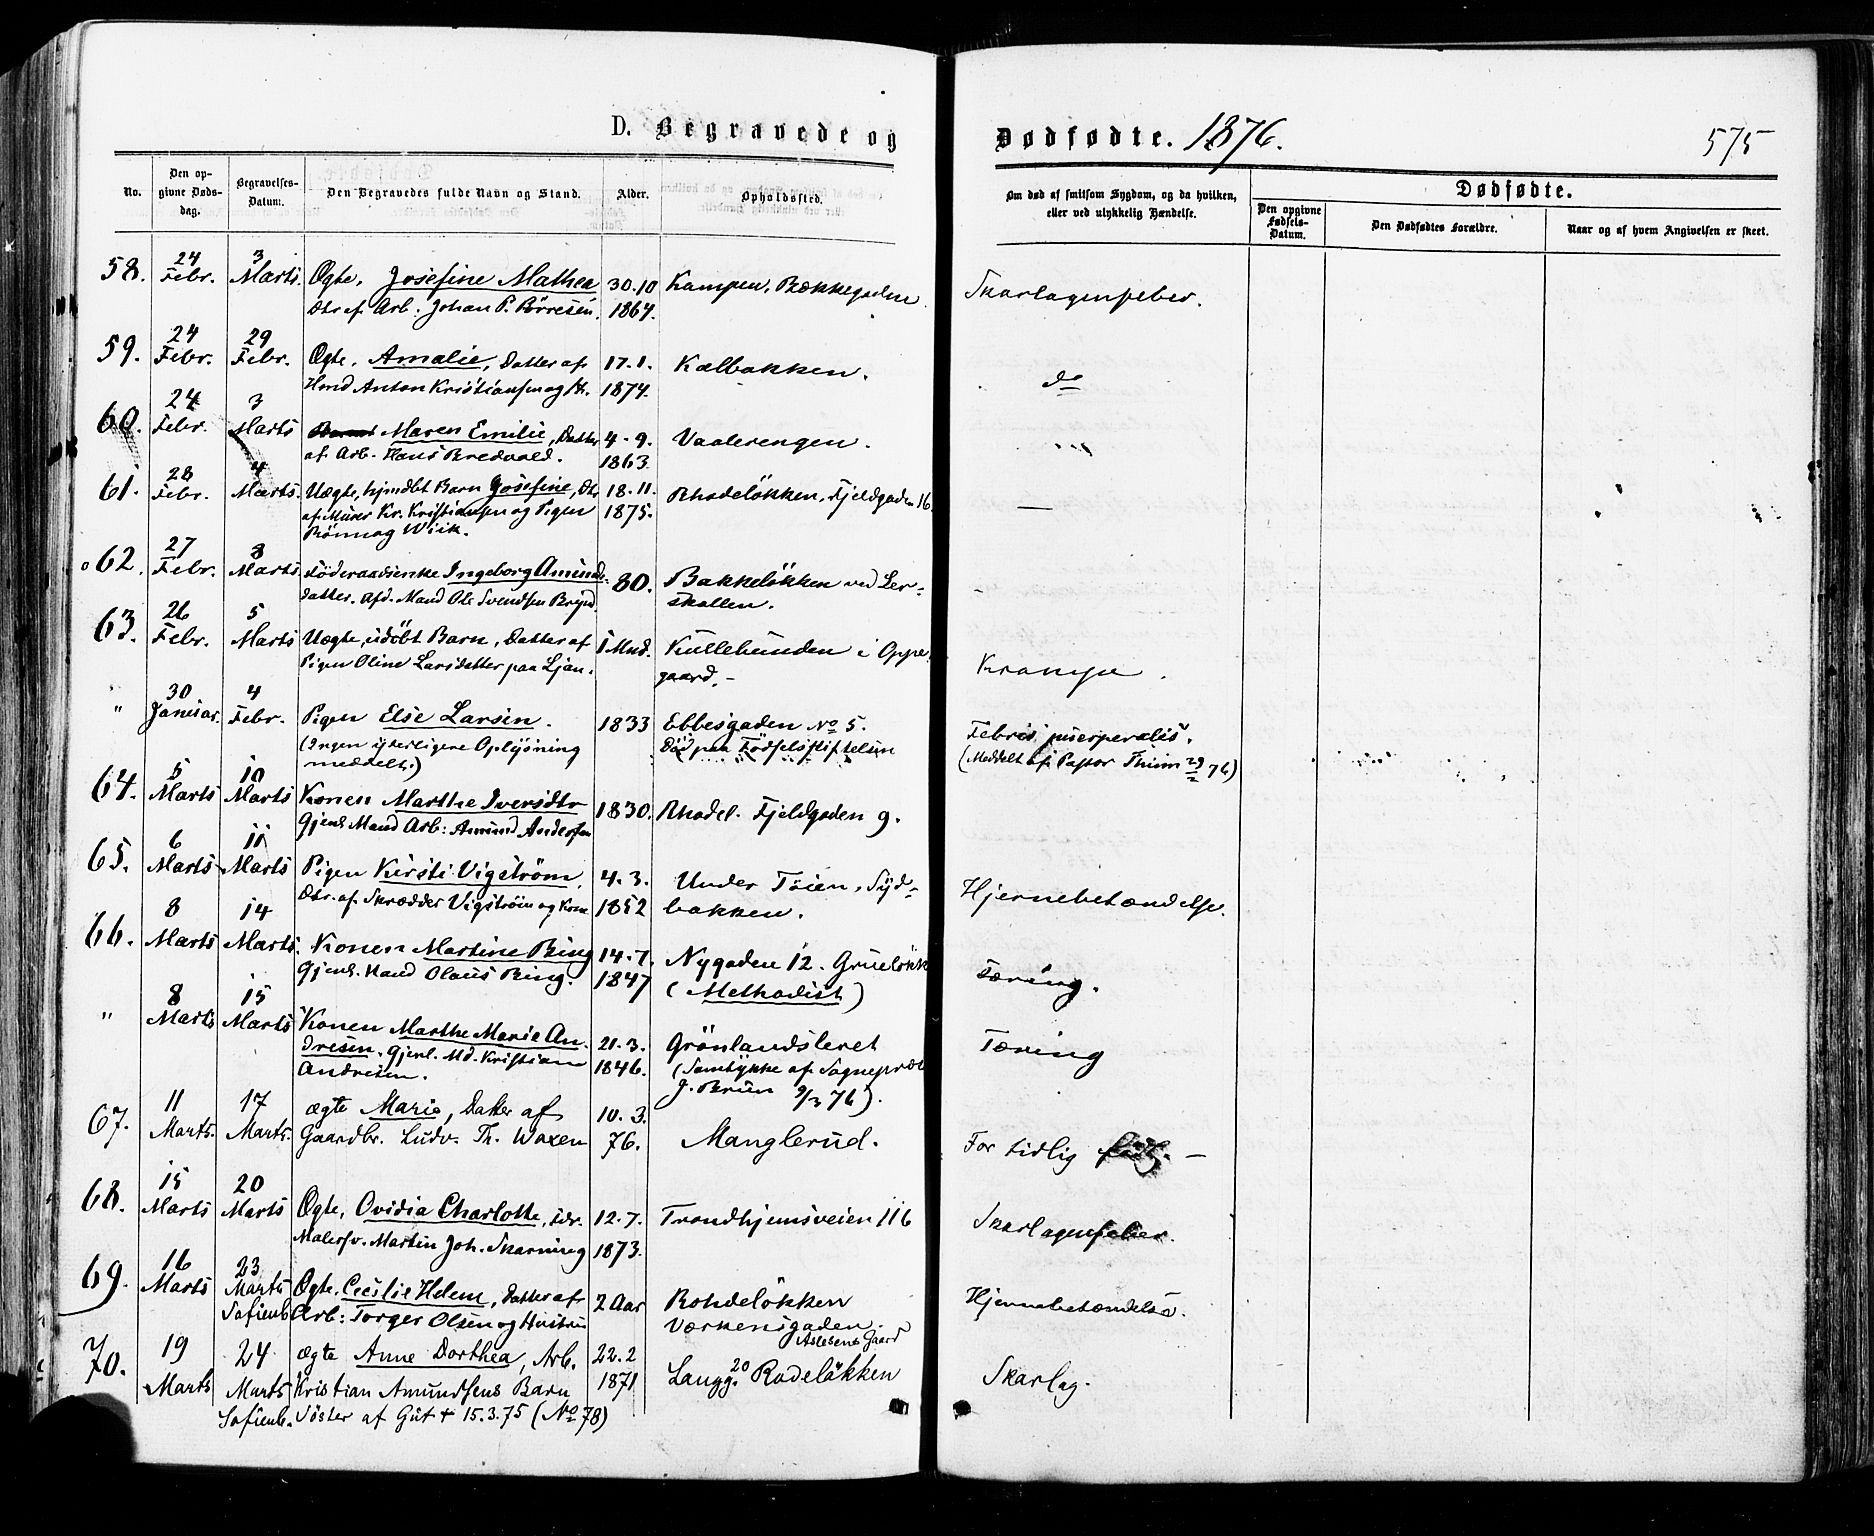 D. Begravede og
Dødfødte. 1876.
575
No.
Den opgivne Dødsdag.
Begravelses-Datum.
Den Begravedes fulde Navn og Stand.
Alder.
Opholdssted.
Om død af smitsom Sygdom, og da hvilken, eller ved ulykkelig Hændelse.
Dødfødte.
Den opgivne Fødsels-Datum.
Den Dødfødtes Forældre.
Naar og af hvem Angivelsen er skeet.
58. 24 Febr. 3 Marts. Ægte, Josefine Mathea 30.10 Kampen, Bækkegaden. Skarlagensfeber.
Dtr af Arb. Johan P. Börresen. 1864.
59. 24 Febr. 29 Febr. Ægte, Amalie, Datter af 17.1. Kalbakken. do
Hmd Anton Kristiansen og H. 1874.
60. 24 Febr. 3 Marts Maren Emilie, Datter 4-9. Vaalerengen. "
af Arb. Hans Bredvold. 1863.
61. 28 Febr. 4 Marts. Uægte, hjmdbt Barn Josefine, Dtr 18.11. Rhodeløkken, Fjeldgaden 16. —
af Murer Kr. Kristiansen og Pigen 1875.
Rönnog Wiik.
62. 27 Febr. 8 Marts. Föderaadsenke Ingeborg Amunds- 80. Bakkeløkken ved Ler-
datter. Afd. Mand Ole Svendsen Bryn. skallen.
63. 26 Febr. 5 Marts Uægte, udöbt Barn, Datter af 1 Mnd. Kullebunden i Oppe- Krampe.
Pigen Oline Larsdatter paa Ljan. gaard.-
" 30 Januar. 4 Febr. Pigen Else Larsen. 1833 Ebbesgaden No 5. Febris puerperalis.
(Ingen yderligere Oplysning Död paa Födselsstiftelsen (Meddelt af Pastor Thinn 29/2 76)
meddelt.)
64. 5 Marts 10 Marts Konen Marthe Iversdtr 1830. Rhodel. Fjeldgaden 9.
Gjenl. Mand Arb: Amund Andersen
65. 6 Marts 11 Marts Pigen Kirsti Vigström. 4.3. Under Töien, Syd- Hjernebetændelse.
Dtr. af Skrædder Vigström og Kone 1852 bakken.
66. 8 Marts 14 Marts. Konen Martine Ring 14.7. Nygaden 12. Grueløkk Tæring.
Gjenl. Mand Olaus Ring. 1847 (Methodist)
" 8 Marts 15 Marts Konen Marthe Marie An- 21.3. Grönlandsleret Tæring
dresen. Gjenl. Md. Kristian 1846. (Samtykke af Sognepræst
Andresen. J. Brun 9/3 76).
67. 11 Marts. 17 Marts. ægte Marie, Datter af 10.3. Manglerud. For tidlig födt. —
Gaardbr. Ludv. Th. Waxen 76.
68. 15 Marts 20 Marts Ægte, Ovidia Charlotte, Fdr. 12.7. Trondhjemsveien 116 Skarlagensfeber.
Malersv. Martin Joh. Skarning 1873.
69. 16 Marts 23 Marts Ægte, Cecilie Helene, Datter af 2 Aar Rohdeløkken Hjernebetændelse.
Sofienb. Arb: Torger Olsen og Hustru Værkensgaden.
Aslesens Gaard
70. 19 Marts 24 Marts ægte Anne Dorthea, Arb. 22.2 Langg. 20 Rodeløkken Skarlag.
Kristian Amundsens Barn 1871
Sofienb. Söster af Gut + 15.3.75 (No 78)